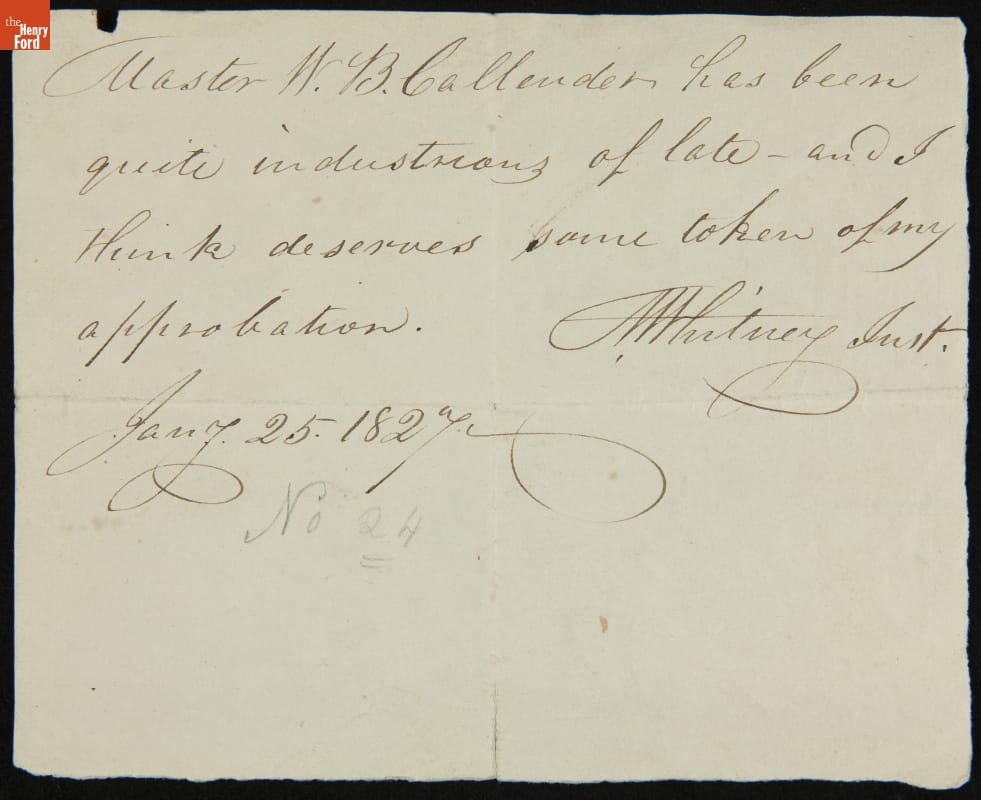 the
Henry
Ford
Master W. B. Callender has been
quite industrious of late – and I
think deserves some token of my
approbation.
Whitney Inst.
Jany. 25. 1827.
No 24